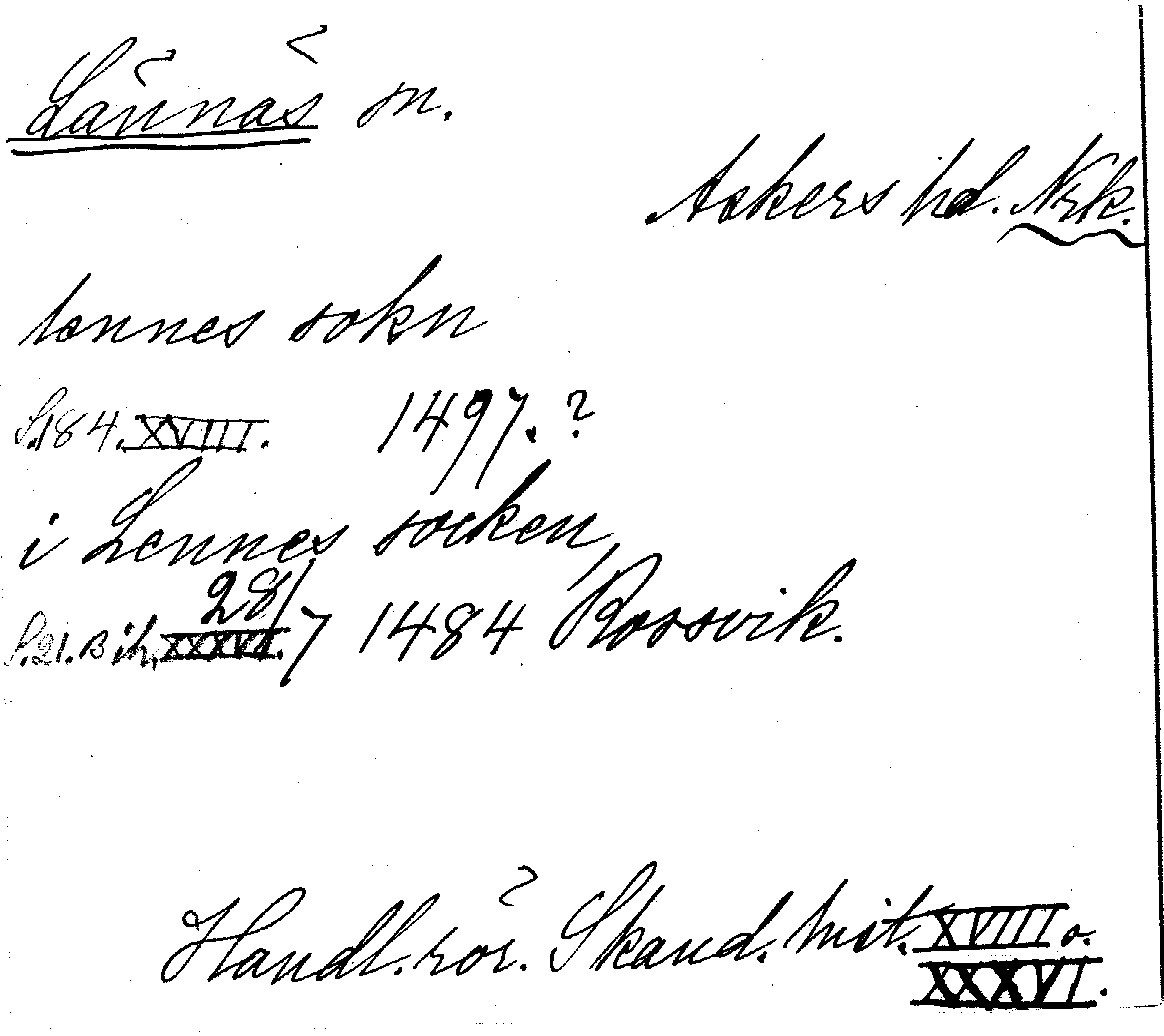 Lännäs sn.
Askers hd. Nrk.
lennes sokn
S. 184. XVIII. 1497. ?
i Lennes socken,
S. 21. Bih. XXXVI. 28/7 1484 Rossvik.
Handl. rör. Skand. hist. XVIII o.
XXXVI.